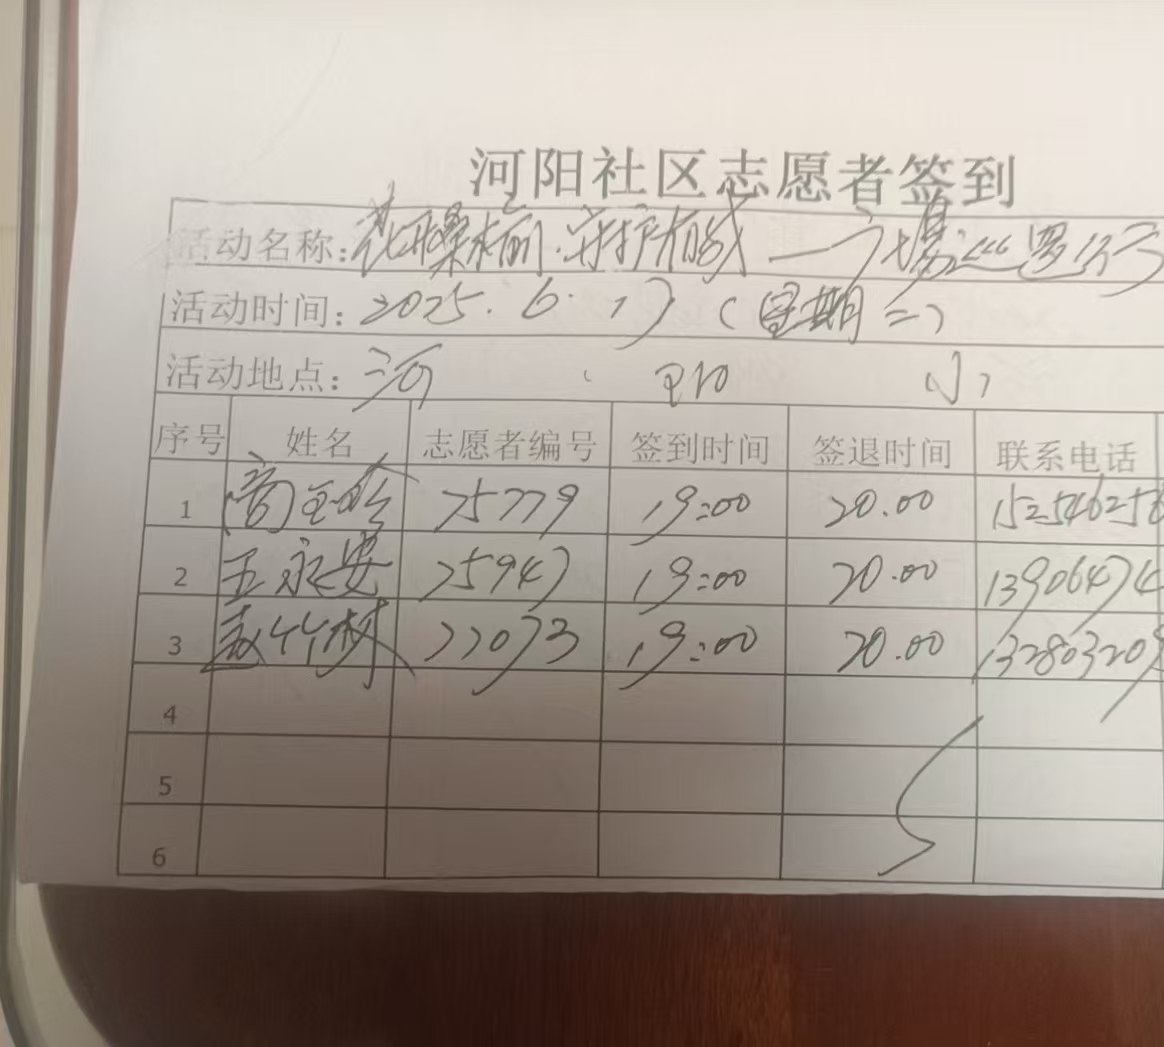 河阳社区志愿者签到
活动名称: 守护有我 — 广场巡逻行
活动时间: 2025.6.17 (星期二)
活动地点: 河 阳 小
序号 姓名 志愿者编号 签到时间 签退时间 联系电话
1 75779 19:00 20.00 152546256
2 王永安 75947 19:00 20.00 13906474
3 赵竹林 77073 19:00 20.00 13280320
4
5
6